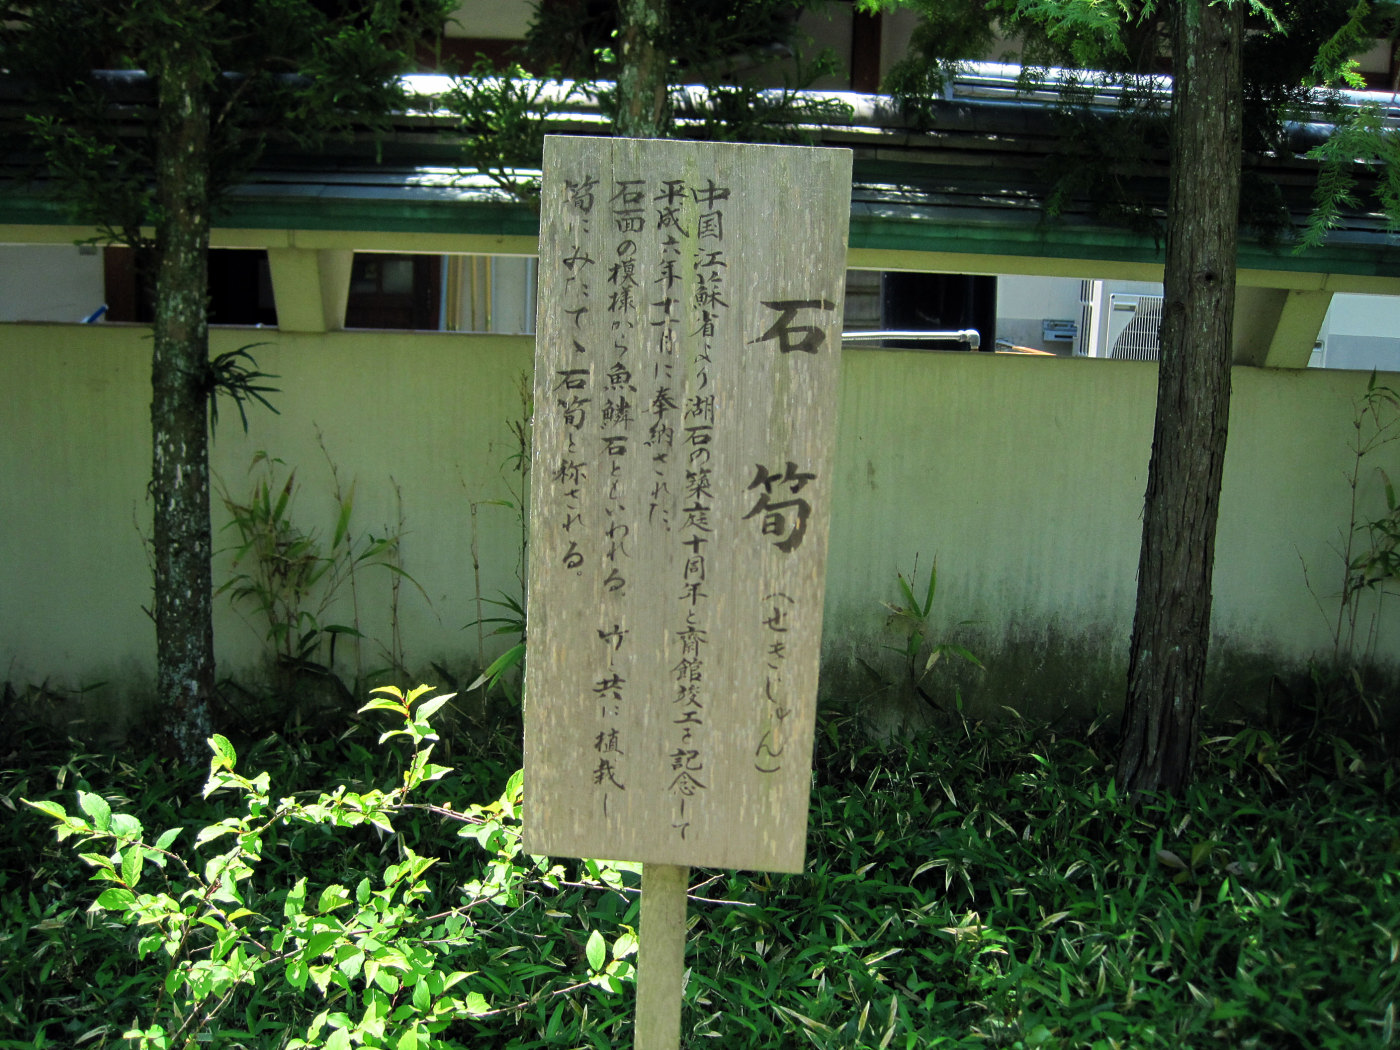 石筍(せきじゅん)
中国江蘇省より湖石の築庭十周年と齋館竣工を記念して
平成六年十一月に奉納された。
石面の模様から魚鱗石ともいわれる。竹と共に植栽し
筍にみたてゝ石筍と称される。